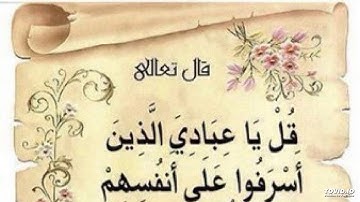 قال تعالى
قُلْ يَا عِبَادِيَ الَّذِينَ
أَسْرَفُوا عَلَى أَنفُسِهِمْ